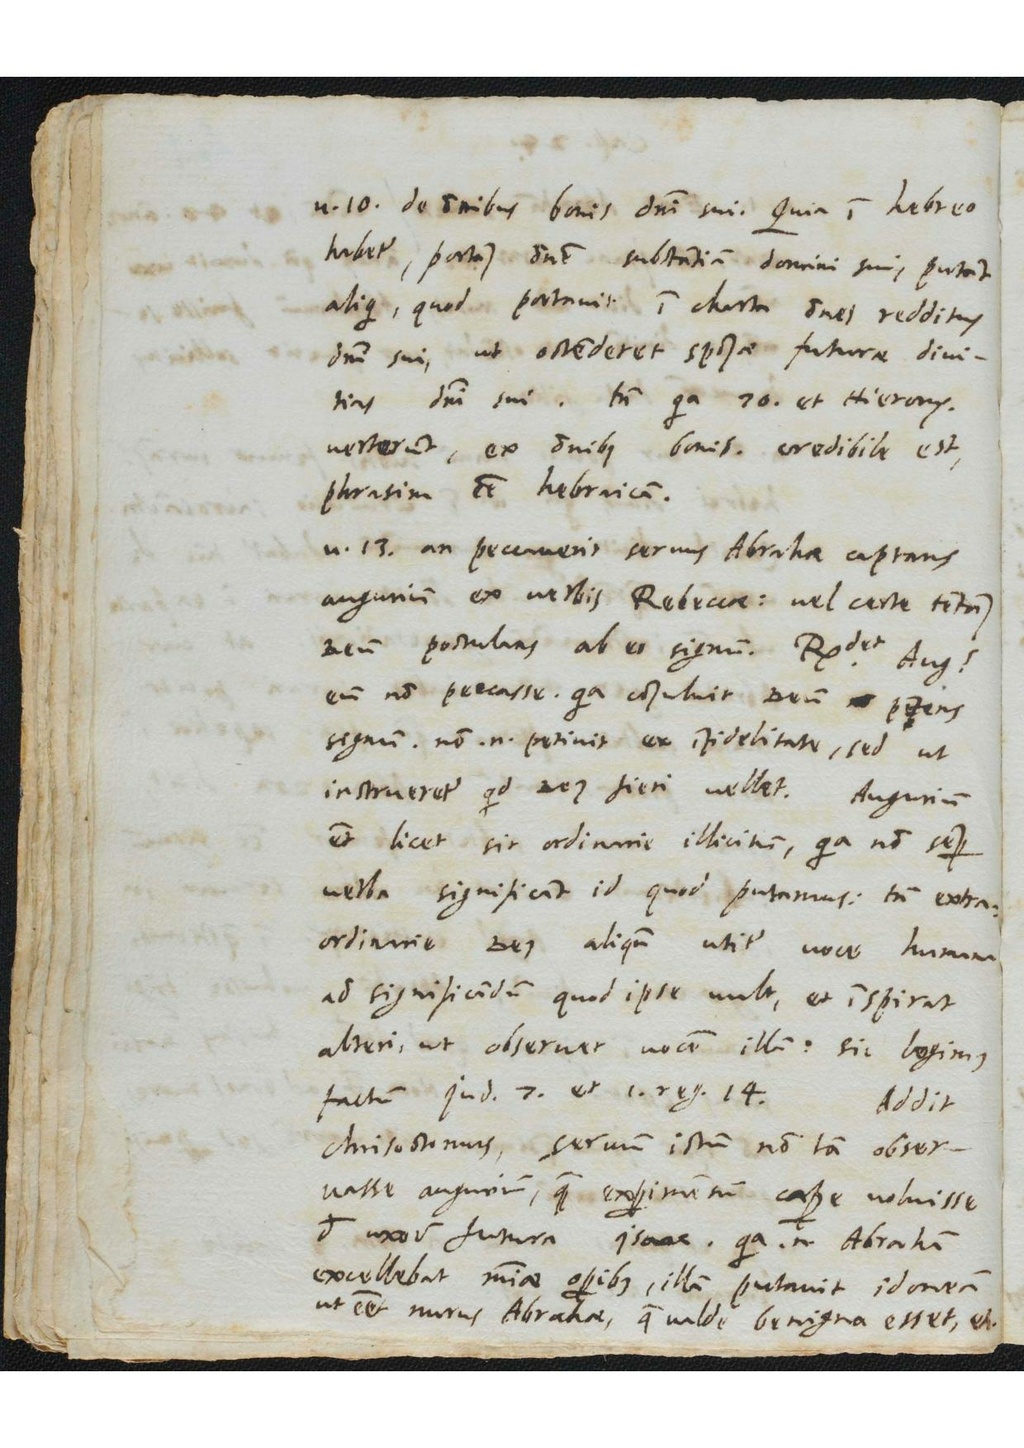 u. 10. de õnibus bonis dn̄i sui. Quia ī hebreo
habet᷑, portās õnē substātiā domini sui, putāt
aliqͥ, quod portauit ī charta õnes redditus
dn̄i sui, ut ostēderet spōsæ futuræ diui-
tias dn̄i sui. tn̄ qa 70. et Hierony.
uerterūt, ex õnibꝯ bonis. credibile est,
phrasim eē̄ hebraicā.
u. 13. an peccauerit seruus Abrahæ captans
augurium ex uerbis Rebeccæ: uel certe tētās
Deū postulans ab eo signū. Rx̄det Augꝰ
eū nō peccasse. qa cōsuluit Deū petens
signū. nō .n. petiuit ex īfidelitate, sed ut
instrueret᷑ qd Deꝯ fieri uellet. Augurium
ēt licet sit ordinarie illicitū, qa nō sēp
uerba significāt id quod putamus: tn̄ extra-
ordinarie Deꝯ aliqn̄ utit᷑ uoce humana
ad significādū quod ipse uult, et īspirat
alteri, ut obseruet uocē illā: sic legimꝯ
factū jud. 7. et 1. reg. 14. Addit
chrisostomus, seruum istū nō tā obser-
uasse augurium, q̄ exꝑimētū capꝑe uoluisse
d̄ uxorē futura jsaac. qa .n. Abrahā
excellebat mīæ oꝑibꝯ, illā putauit idoneā
ut eēt nurus Abrahæ, q̄ ualde benigna esset, et